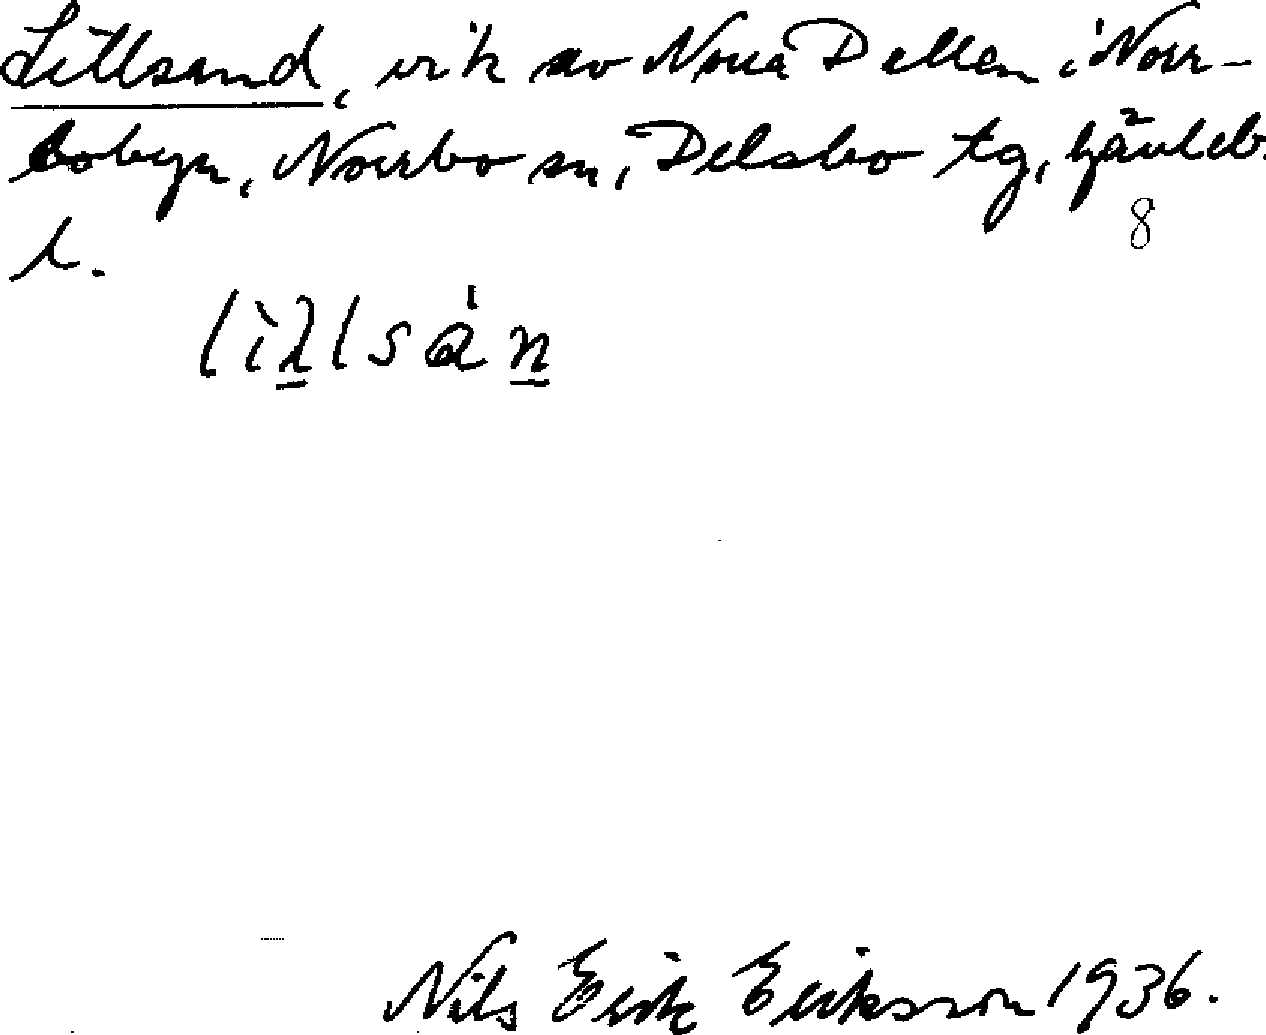 Lillsand, vik av Norra Dellen i Norr-
bobyn, Norrbo sn, Delsbo tg, Gävleb.
8
l.
Nils Erik Eriksson 1936.